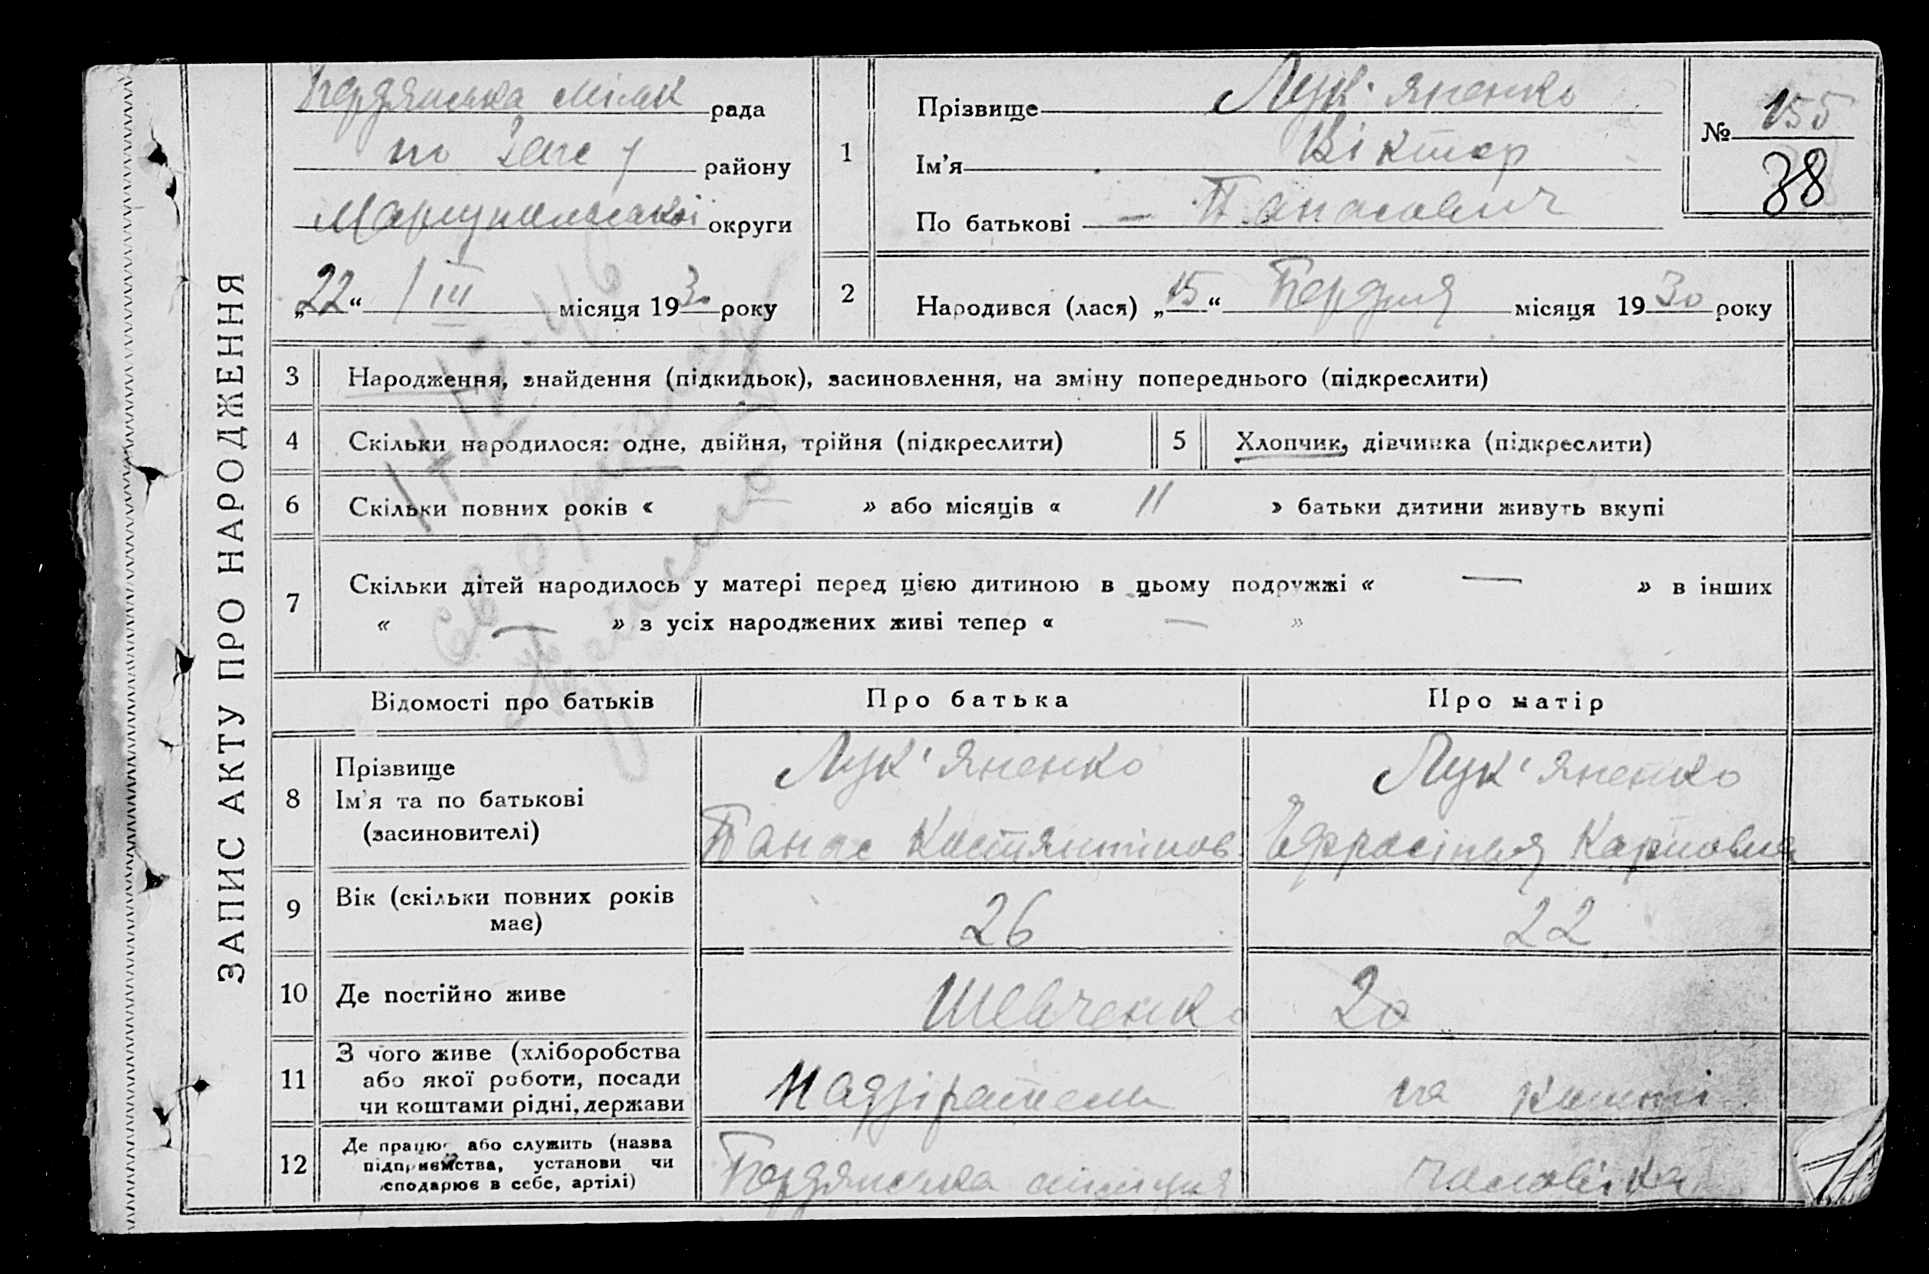 ЗАПИС АКТУ ПРО НАРОДЖЕННЯ
Бердянська міськ рада
по Загс у району
Маріупольської округи
„22“ / III місяця 1930 року
1
Прізвище Лук'яненко
Ім'я Віктор
По батькові – Панасович
№ 155
38
2
Народився (лася) „15“ Березня місяця 1930 року
3 Народження, знайдення (підкидьок), засиновлення, на зміну попереднього (підкреслити)
4 Скільки народилося: одне, двійня, трійня (підкреслити)
5 Хлопчик, дівчинка (підкреслити)
6 Скільки повних років « » або місяців « 11 » батьки дитини живуть вкупі
7 Скільки дітей народилось у матері перед цією дитиною в цьому подружжі « — » в інших
« — » з усіх народжених живі тепер « — »
Відомості про батьків Про батька Про матір
8 Прізвище
Ім'я та по батькові
(засиновителі)
Лук'яненко
Панас Костянтинов
Лук'яненко
Ефросінія Карповна
9 Вік (скільки повних років
має)
26 22
10 Де постійно живе Шевченко 20
11 З чого живе (хліборобства
або якої роботи, посади
чи коштами рідні, держави
Надзіратель на кошті
12 Де працює або служить (назва
підприємства, установи чи
сподарює в себе, артілі)
Бердянська міліція чоловіка